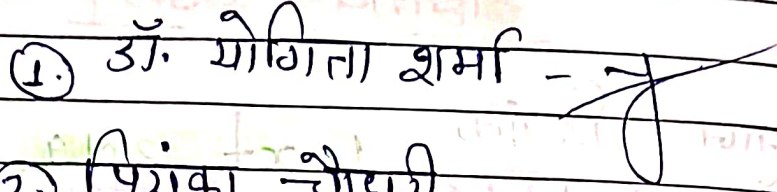 1. डॉ. योगिता शर्मा -
2. प्रियंका चौधरी